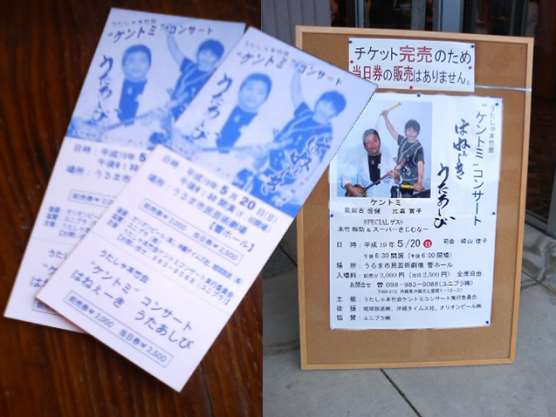 うたしゃ本竹裕
"ケントミ"コンサート
うたあしび
うたしゃ本竹裕
"ケントミ"コンサート
うたあしび
日時:平成19年5月20日(日)
場所:うるま市民芸術劇場
【響ホール】
うたしゃ本竹会
"ケントミ"コンサート
はねぇーき うたあしび
前売券¥2,000 当日券¥2,500
チケット完売のため
当日券の販売はありません。
うたしゃ本竹会
"ケントミ"コンサート
はねぇーき
うたあしび
ケントミ
SPECIALゲスト
本竹 裕助 & スーパーきじむなー
日 時:平成19年5/20(日)
午後6:30開演(午後6:00開場)
場 所:うるま市民芸術劇場 響ホール
入場料:前売り2,000円(当日2,500円)全席自由
お問合せ ☎098-983-0088(ユニプラ㈱)
主 催:うたしゃ本竹会ケントミコンサート実行委員会
後 援:琉球放送㈱、沖縄タイムス社、オリオンビール㈱
協 賛:ユニプラ㈱